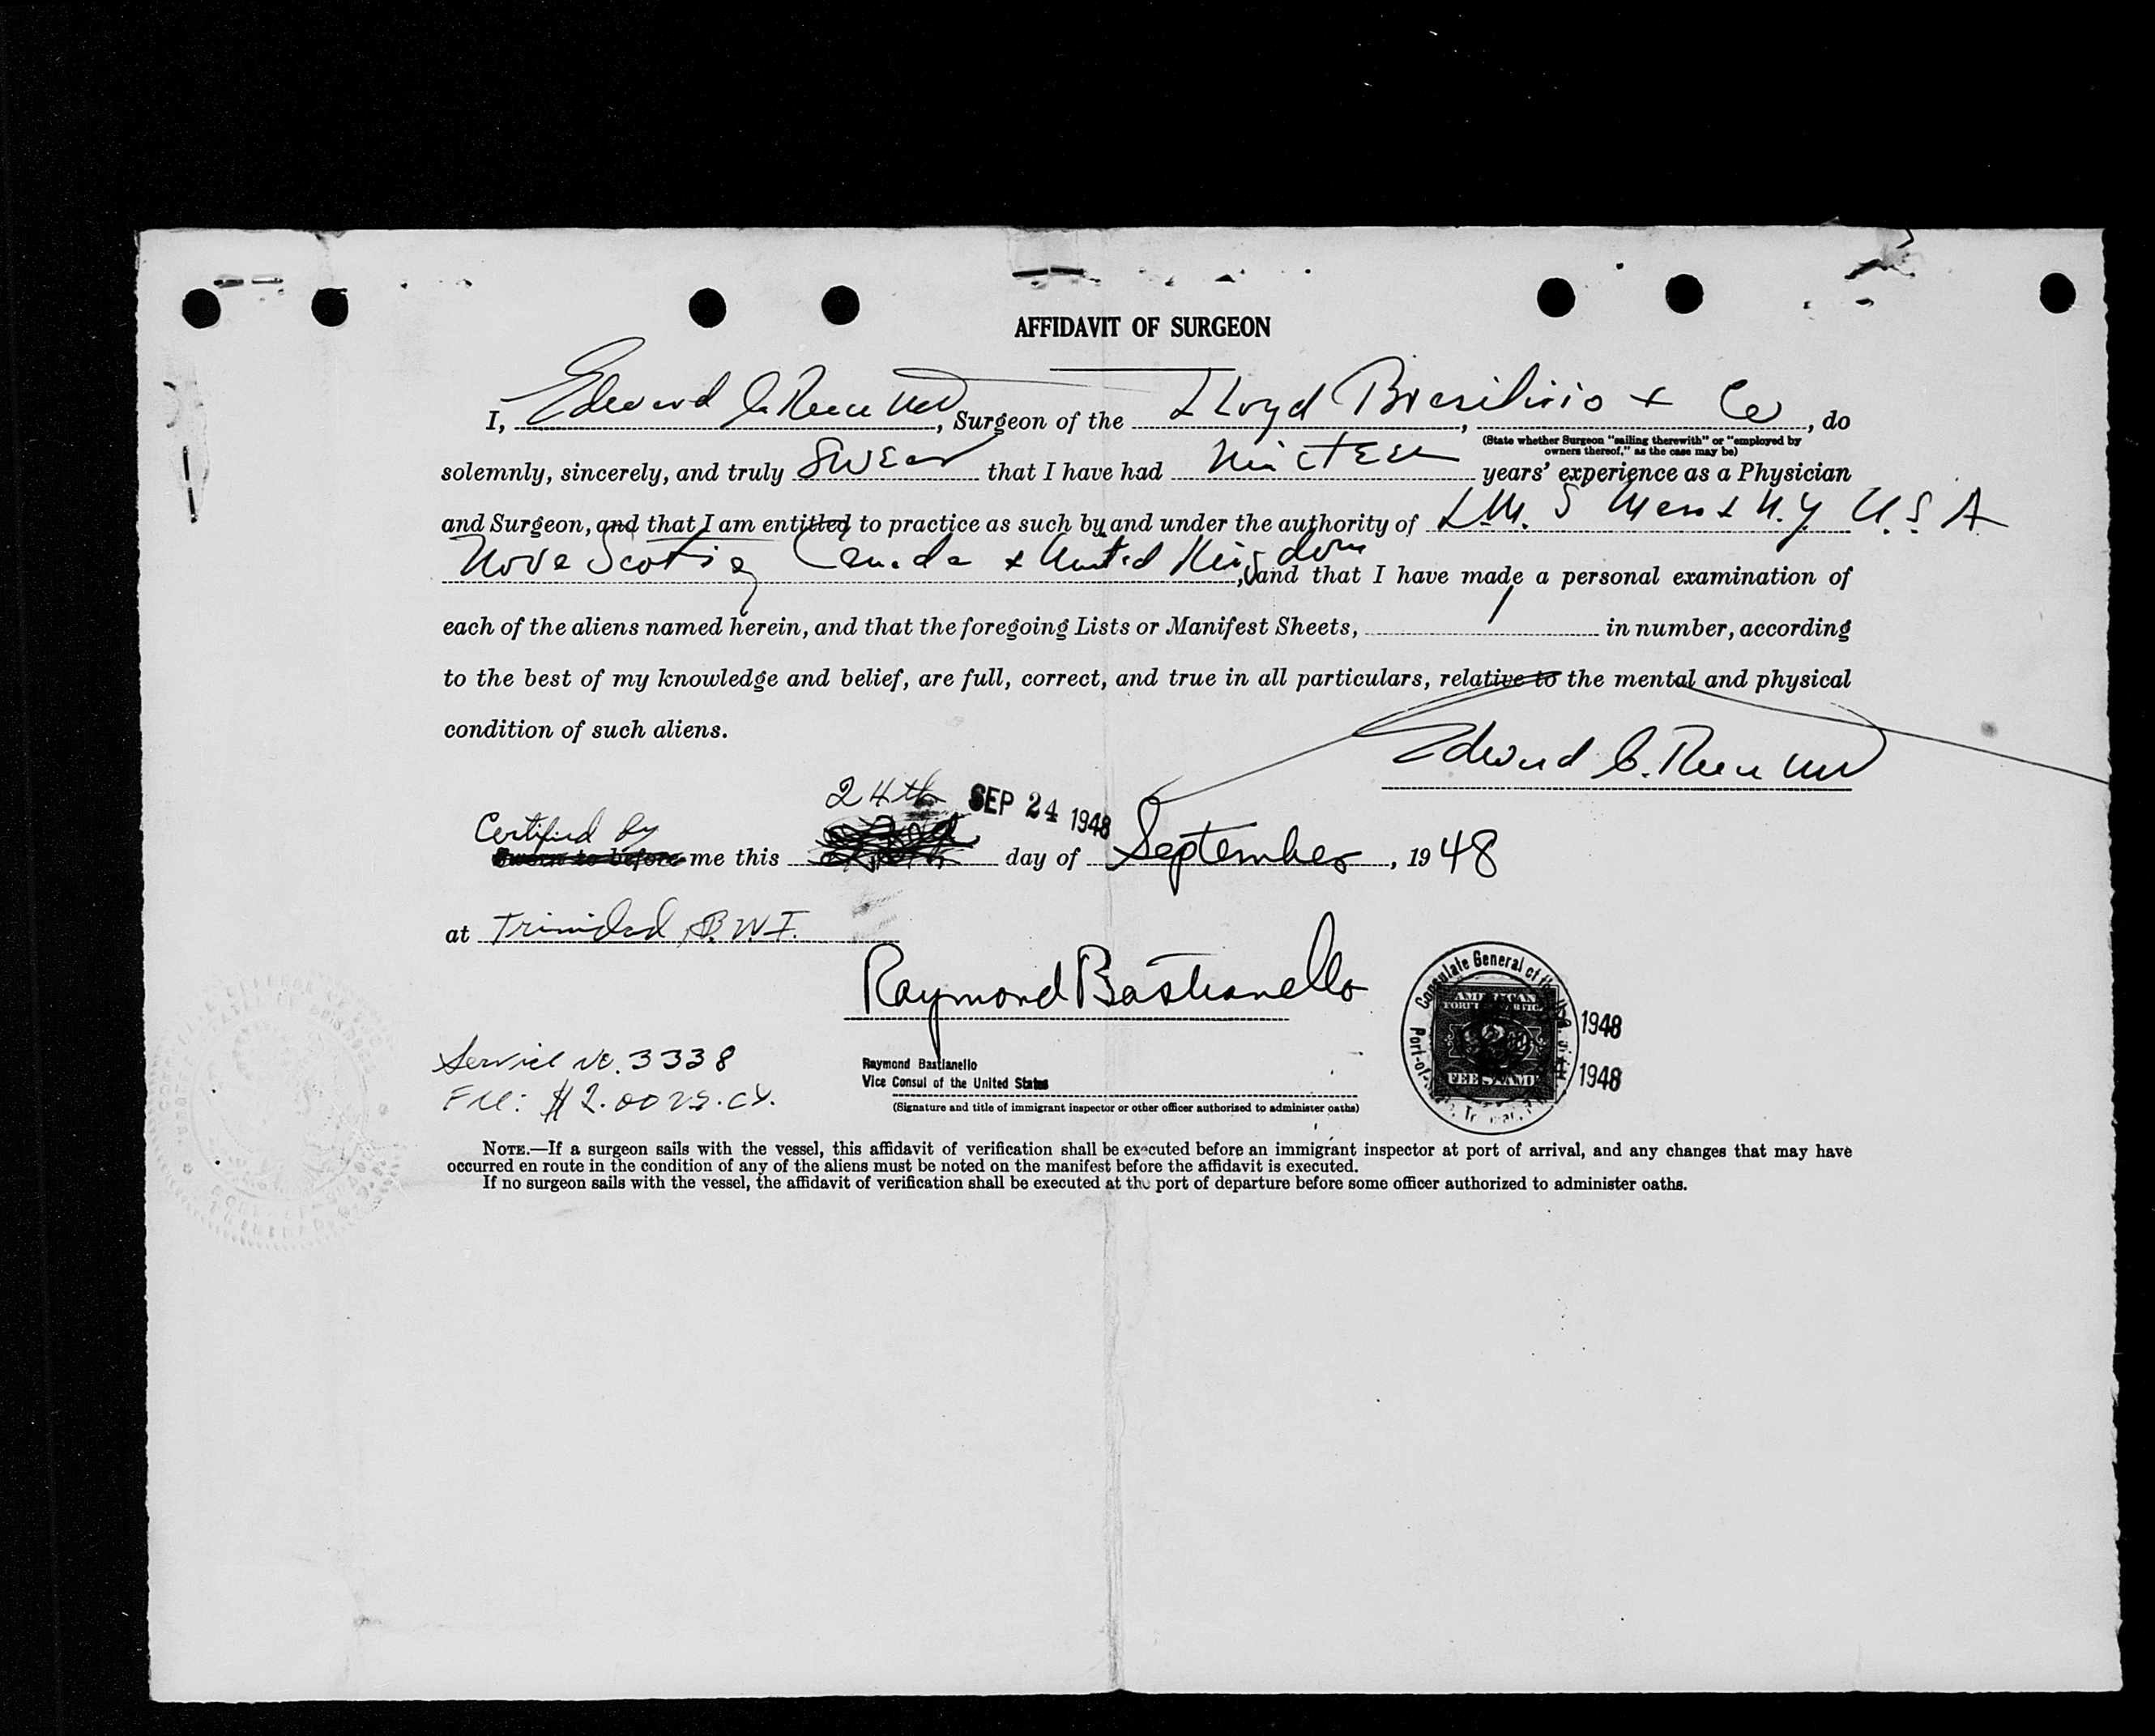 AFFIDAVIT OF SURGEON
I, Edward C. MD, Surgeon of the Lloyd Brasilirio + Co, do
(State whether Surgeon "sailing therewith" or "employed by
owners thereof," as the case may be)
solemnly, sincerely, and truly Swear that I have had Nineteen years' experience as a Physician
and Surgeon, and that I am entitled to practice as such by and under the authority of L.M. S Mass & N.Y U.S.A
Nova Scotia Canada & United Kingdom, and that I have made a personal examination of
each of the aliens named herein, and that the foregoing Lists or Manifest Sheets, 1 in number, according
to the best of my knowledge and belief, are full, correct, and true in all particulars, relative to the mental and physical
condition of such aliens.
Edward C. MD
24th SEP 24 1948
Certified by
Sworn to before me this day of September, 1948
at Trinidad, B.W.I.
Raymond Bastianello
Consulate General of the
AMERICAN
FEE STAMP
1948
1948
Service No. 3338
Fee: $2.00
Raymond Bastianello
Vice Consul of the United States
(Signature and title of immigrant inspector or other officer authorized to administer oaths)
NOTE.—If a surgeon sails with the vessel, this affidavit of verification shall be executed before an immigrant inspector at port of arrival, and any changes that may have
occurred en route in the condition of any of the aliens must be noted on the manifest before the affidavit is executed.
If no surgeon sails with the vessel, the affidavit of verification shall be executed at the port of departure before some officer authorized to administer oaths.